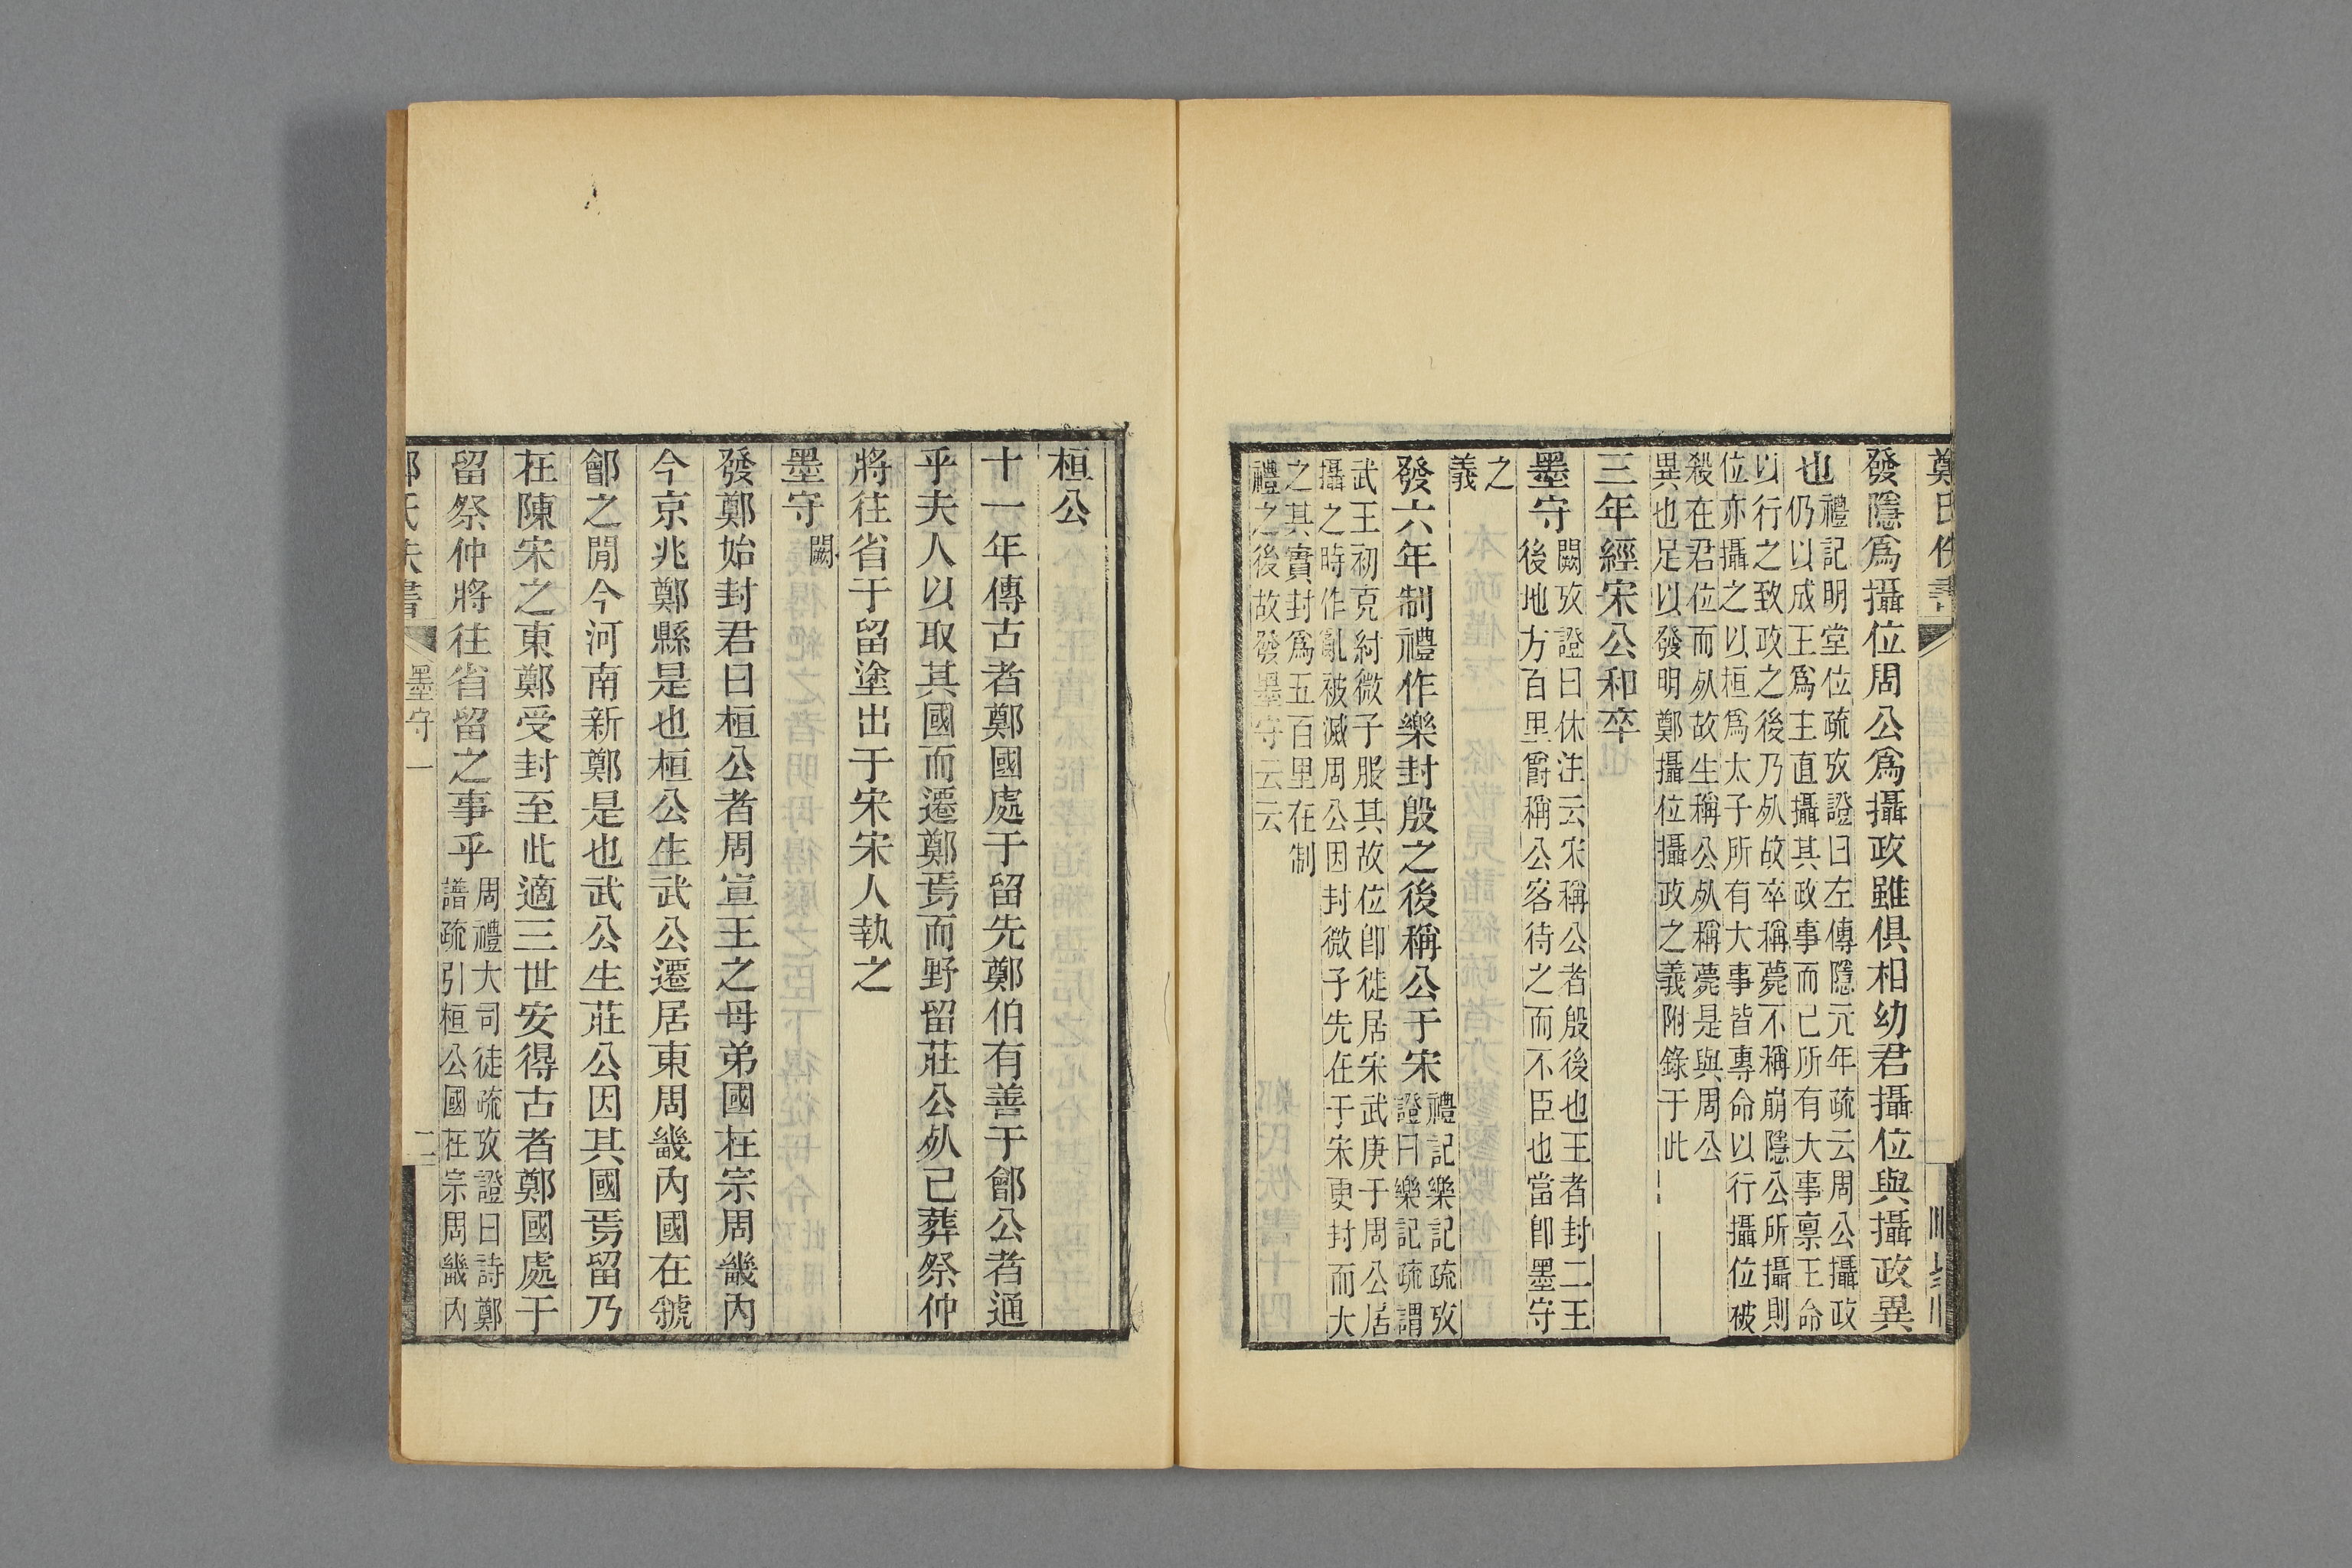 鄭氏佚書
發隱爲攝位周公爲攝政雖俱相幼君攝位與攝政異
也
禮記明堂位疏攷證曰左傳隱元年疏云周公攝政
仍以成王爲主直攝其政事而已所有大事稟王命
以行之致政之後乃㱙故卒稱薨不稱崩隱公所攝則
位亦攝之以桓爲太子所有大事皆專命以行攝位被
殺在君位而㱙故生稱公㱙稱薨是與周公
異也足以發明鄭攝位攝政之義附錄于此
三年經宋公和卒
墨守
闕攷證曰休注云宋稱公者殷後也王者封二王
後地方百里爵稱公客待之而不臣也當卽墨守
之
義
發六年制禮作樂封殷之後稱公于宋
禮記樂記疏攷
證曰樂記疏謂
武王初克紂微子服其故位卽徙居宋武庚于周公居
攝之時作亂被滅周公因封微子先在于宋更封而大
之其實封爲五百里在制
禮之後故發墨守云云
桓公
十一年傳古者鄭國處于留先鄭伯有善于鄶公者通
乎夫人以取其國而遷鄭焉而野留莊公㱙已葬祭仲
將往省于留塗出于宋宋人執之
墨守
闕
發鄭始封君曰桓公者周宣王之母弟國在宗周畿內
今京兆鄭縣是也桓公生武公遷居東周畿內國在虢
鄶之閒今河南新鄭是也武公生莊公因其國焉留乃
在陳宋之東鄭受封至此適三世安得古者鄭國處于
留祭仲將往省留之事乎
周禮大司徒疏攷證曰詩鄭
譜疏引桓公國在宗周畿內
鄭氏佚書
墨守一
二